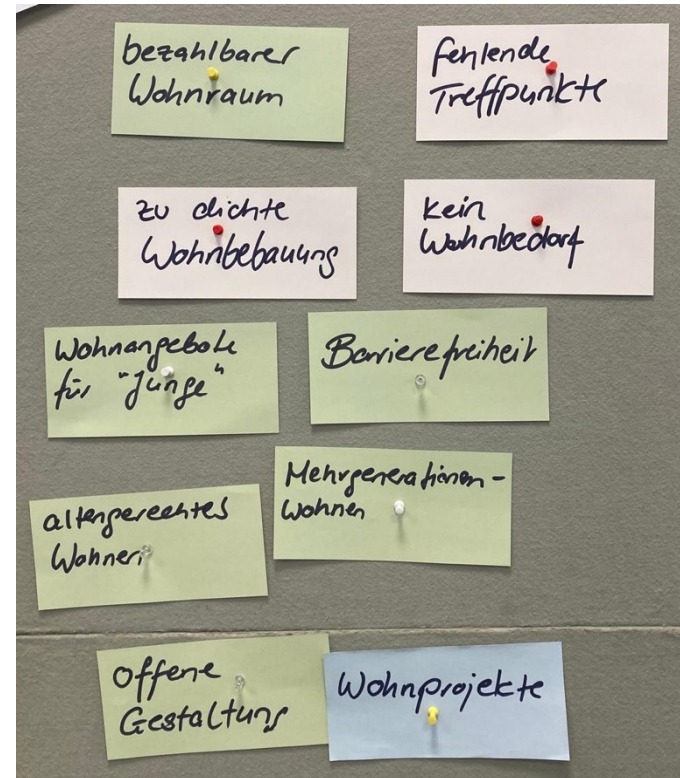 bezahlbarer
Wohnraum
fehlende
Treffpunkte
zu dichte
Wohnbebauung
kein
Wohnbedarf
Wohnangebote
für "Junge"
Barrierefreiheit
Mehrgenerationen-
Wohnen
altengerechtes
Wohnen
Offene
Gestaltung
Wohnprojekte